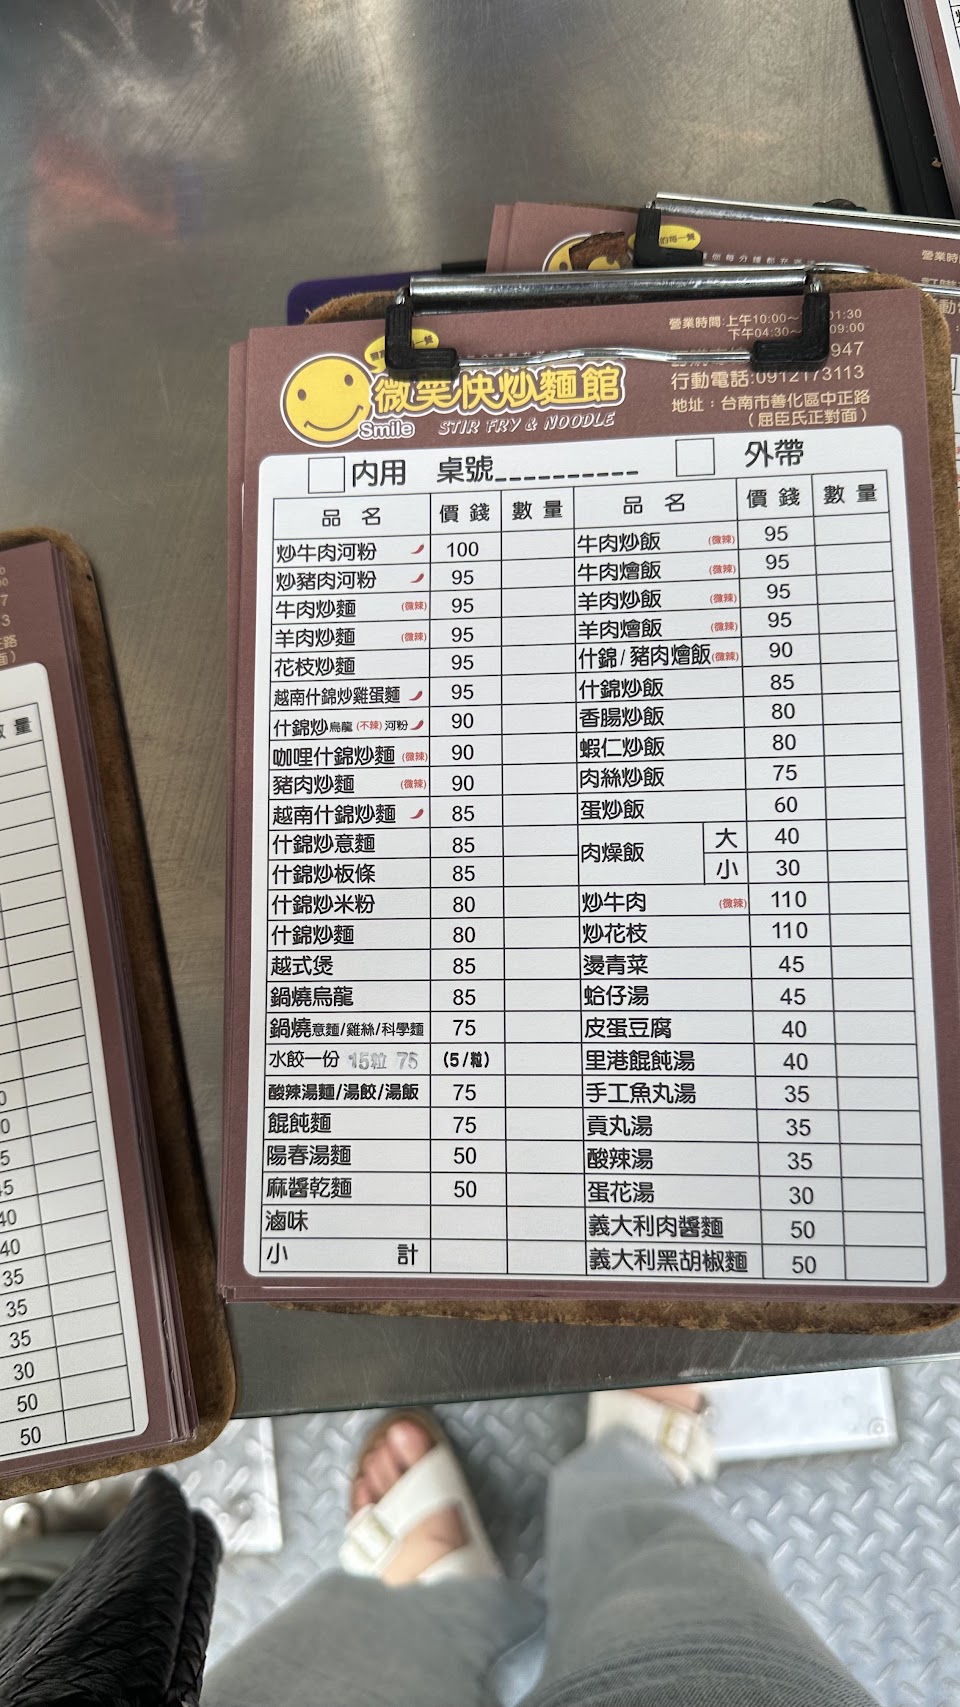 營業時間:上午10:00～ 01:30
下午04:30～ 09:00
947
行動電話:0912173113
地址：台南市善化區中正路
（屈臣氏正對面）
微笑快炒麵館
Smile STIR FRY & NOODLE
內用 桌號__________ 外帶
品名 價錢 數量 品名 價錢 數量
炒牛肉河粉 100 牛肉炒飯 (微辣) 95
炒豬肉河粉 95 牛肉燴飯 (微辣) 95
牛肉炒麵 (微辣) 95 羊肉炒飯 (微辣) 95
羊肉炒麵 (微辣) 95 羊肉燴飯 (微辣) 95
花枝炒麵 95 什錦/豬肉燴飯(微辣) 90
越南什錦炒雞蛋麵 95 什錦炒飯 85
什錦炒烏龍(不辣)河粉 90 香腸炒飯 80
咖哩什錦炒麵 (微辣) 90 蝦仁炒飯 80
豬肉炒麵 (微辣) 90 肉絲炒飯 75
越南什錦炒麵 85 蛋炒飯 60
什錦炒意麵 85 肉燥飯 大 40
什錦炒板條 85 小 30
什錦炒米粉 80 炒牛肉 (微辣) 110
什錦炒麵 80 炒花枝 110
越式煲 85 燙青菜 45
鍋燒烏龍 85 蛤仔湯 45
鍋燒意麵/雞絲/科學麵 75 皮蛋豆腐 40
水餃一份 15粒 75 (5/粒) 里港餛飩湯 40
酸辣湯麵/湯餃/湯飯 75 手工魚丸湯 35
餛飩麵 75 貢丸湯 35
陽春湯麵 50 酸辣湯 35
麻醬乾麵 50 蛋花湯 30
滷味 義大利肉醬麵 50
小計 義大利黑胡椒麵 50
營業時
數量
40
40
35
35
35
30
50
50